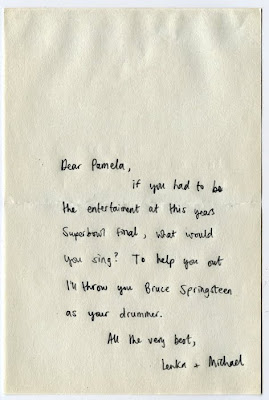 Dear Pamela,
if you had to be
the entertaiment at this years
Superbowl final, what would
you sing? To help you out
I'll throw you Bruce Springsteen
as your drummer.
All the very best,
Lenka + Michael